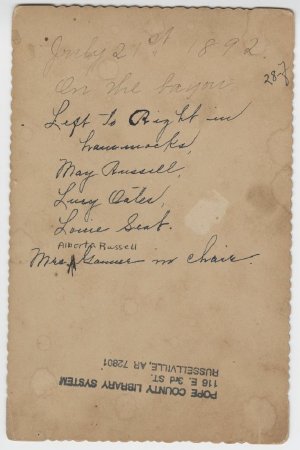 July 21st 1892.
On the bayou
28-f
Left to Right in
hammocks,
May Russell,
Lucy Oates,
Louie Seat.
Alberta Russell
Mrs. ^ Gardner in chair
POPE COUNTY LIBRARY SYSTEM
116 E. 3rd ST.
RUSSELLVILLE, AR 72801